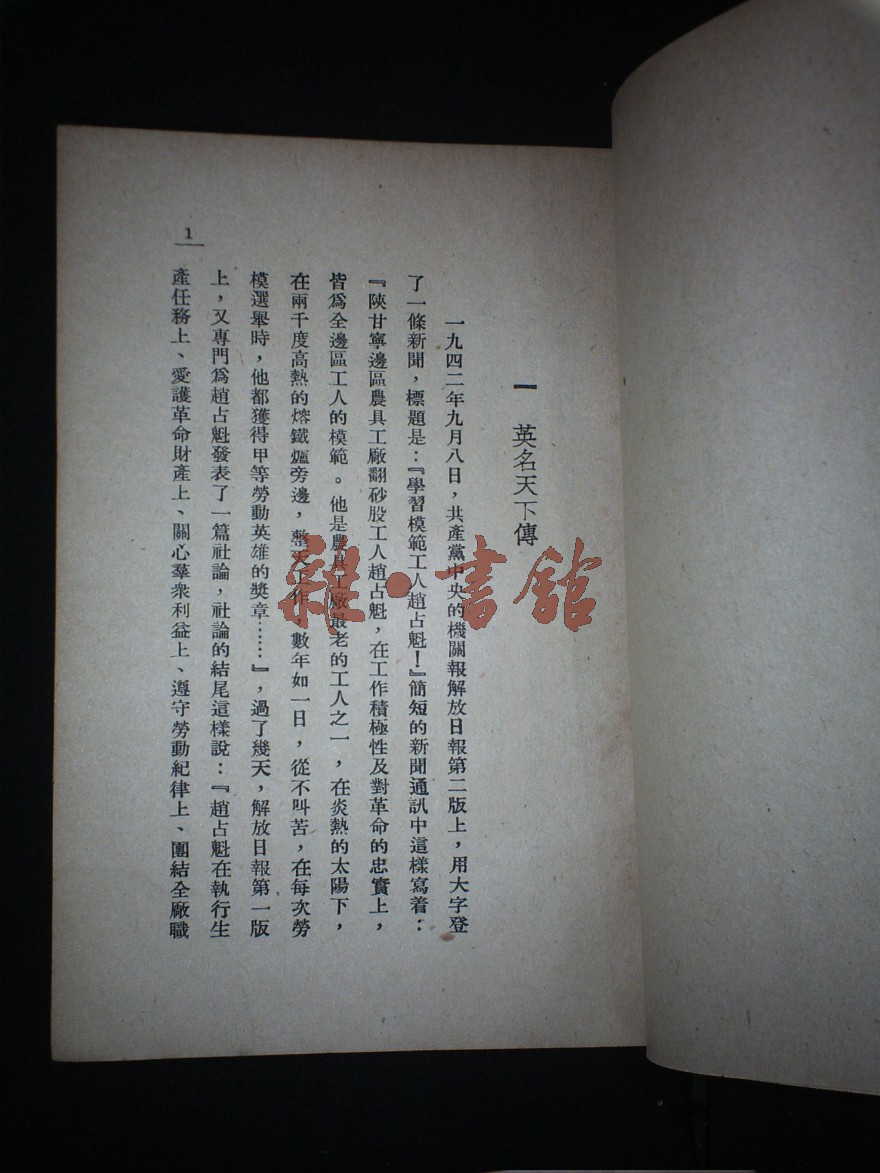 一 英名天下傳
一九四二年九月八日，共產黨中央的機關報解放日報第二版上，用大字登
了一條新聞，標題是：『學習模範工人趙占魁！』簡短的新聞通訊中這樣寫着：
『陝甘寧邊區農具工廠翻砂股工人趙占魁，在工作積極性及對革命的忠實上，
皆爲全邊區工人的模範。他是農具工廠最老的工人之一，在炎熱的太陽下，
在兩千度高熱的熔鐵爐旁邊，整天工作，數年如一日，從不叫苦，在每次勞
模選舉時，他都獲得甲等勞動英雄的獎章……』，過了幾天，解放日報第一版
上，又專門爲趙占魁發表了一篇社論，社論的結尾這樣說：『趙占魁在執行生
產任務上、愛護革命財產上、關心羣衆利益上、遵守勞動紀律上、團結全廠職
1
雜·書館